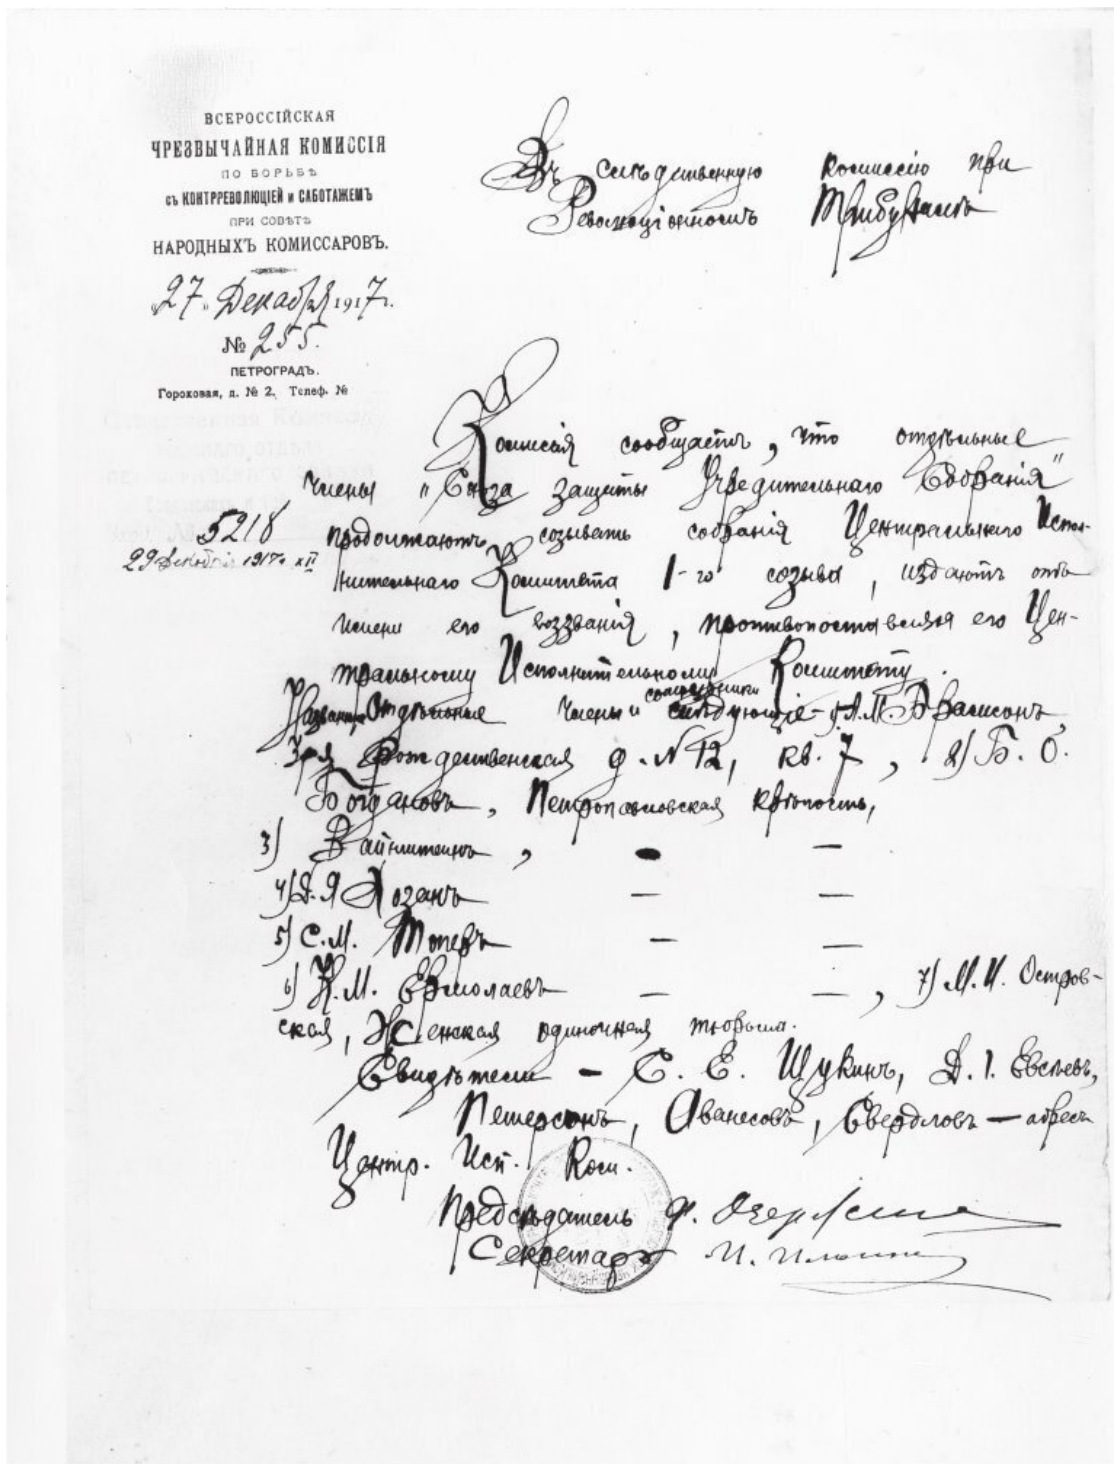 ВСЕРОССІЙСКАЯ
ЧРЕЗВЫЧАЙНАЯ КОМИССІЯ
ПО БОРЬБѢ
съ КОНТРРЕВОЛЮЦІЕЙ и САБОТАЖЕМЪ
ПРИ СОВѢТѢ
НАРОДНЫХЪ КОМИССАРОВЪ.
"27" Декабря 1917г.
№ 255.
ПЕТРОГРАДЪ.
Гороховая, д. № 2. Телеф. №
Въ слѣдственную комиссію при
Революціонномъ Трибуналѣ
Комиссія сообщаетъ, что отдѣльные
члены "Союза защиты Учредительнаго Собранія"
продолжаютъ созывать собранія Центральнаго Испол-
нительнаго Комитета 1-го созыва, издаютъ отъ
имени его воззванія, противопоставляя его Цен-
тральному Исполнительному Комитету.
5218
29 Декабря 1917г. XII
отдѣльные члены слѣдующіе - 1/ А.М.
Рождественская д. № 12, кв. 7, 2/ Б. О.
Богдановъ, Петропавловская крѣпость,
3) Вайнштейнъ, — —
4) — —
5) С.М. — —
6) Ермолаевъ — —, 7) М.И. Остров-
ская, Женская одиночная тюрьма.
Свидѣтели - С. Е. Щукинъ, Д. І. Евсѣевъ,
Петерсонъ, Аванесовъ, Свердловъ — адресъ
Центр. Исп. Ком.
Предсѣдатель Ф. Дзержинскій
Секретарь И. Ильинъ